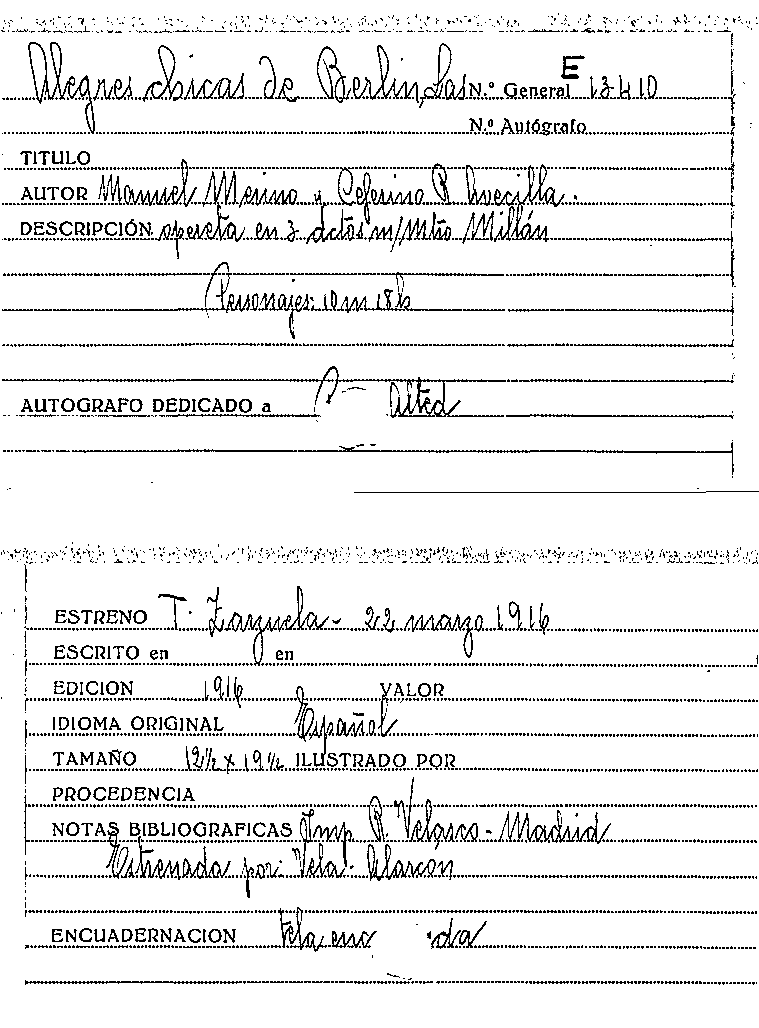 Alegres chicas de Berlin, Las N.º General E 13-410
N.º Autógrafo
TITULO
AUTOR Manuel Merino y Ceferino R. Avecilla.
DESCRIPCIÓN opereta en 3 actos m/Mtro Millán
Personajes: 10 m 18 h
AUTOGRAFO DEDICADO a Alted
ESTRENO T. Zarzuela - 22 marzo 1916
ESCRITO en en
EDICION 1916 VALOR
IDIOMA ORIGINAL Español
TAMAÑO 12½ x 19½ ILUSTRADO POR
PROCEDENCIA
NOTAS BIBLIOGRAFICAS Imp. R. Velasco - Madrid
Estrenada por: Vela - Alarcón
ENCUADERNACION tela